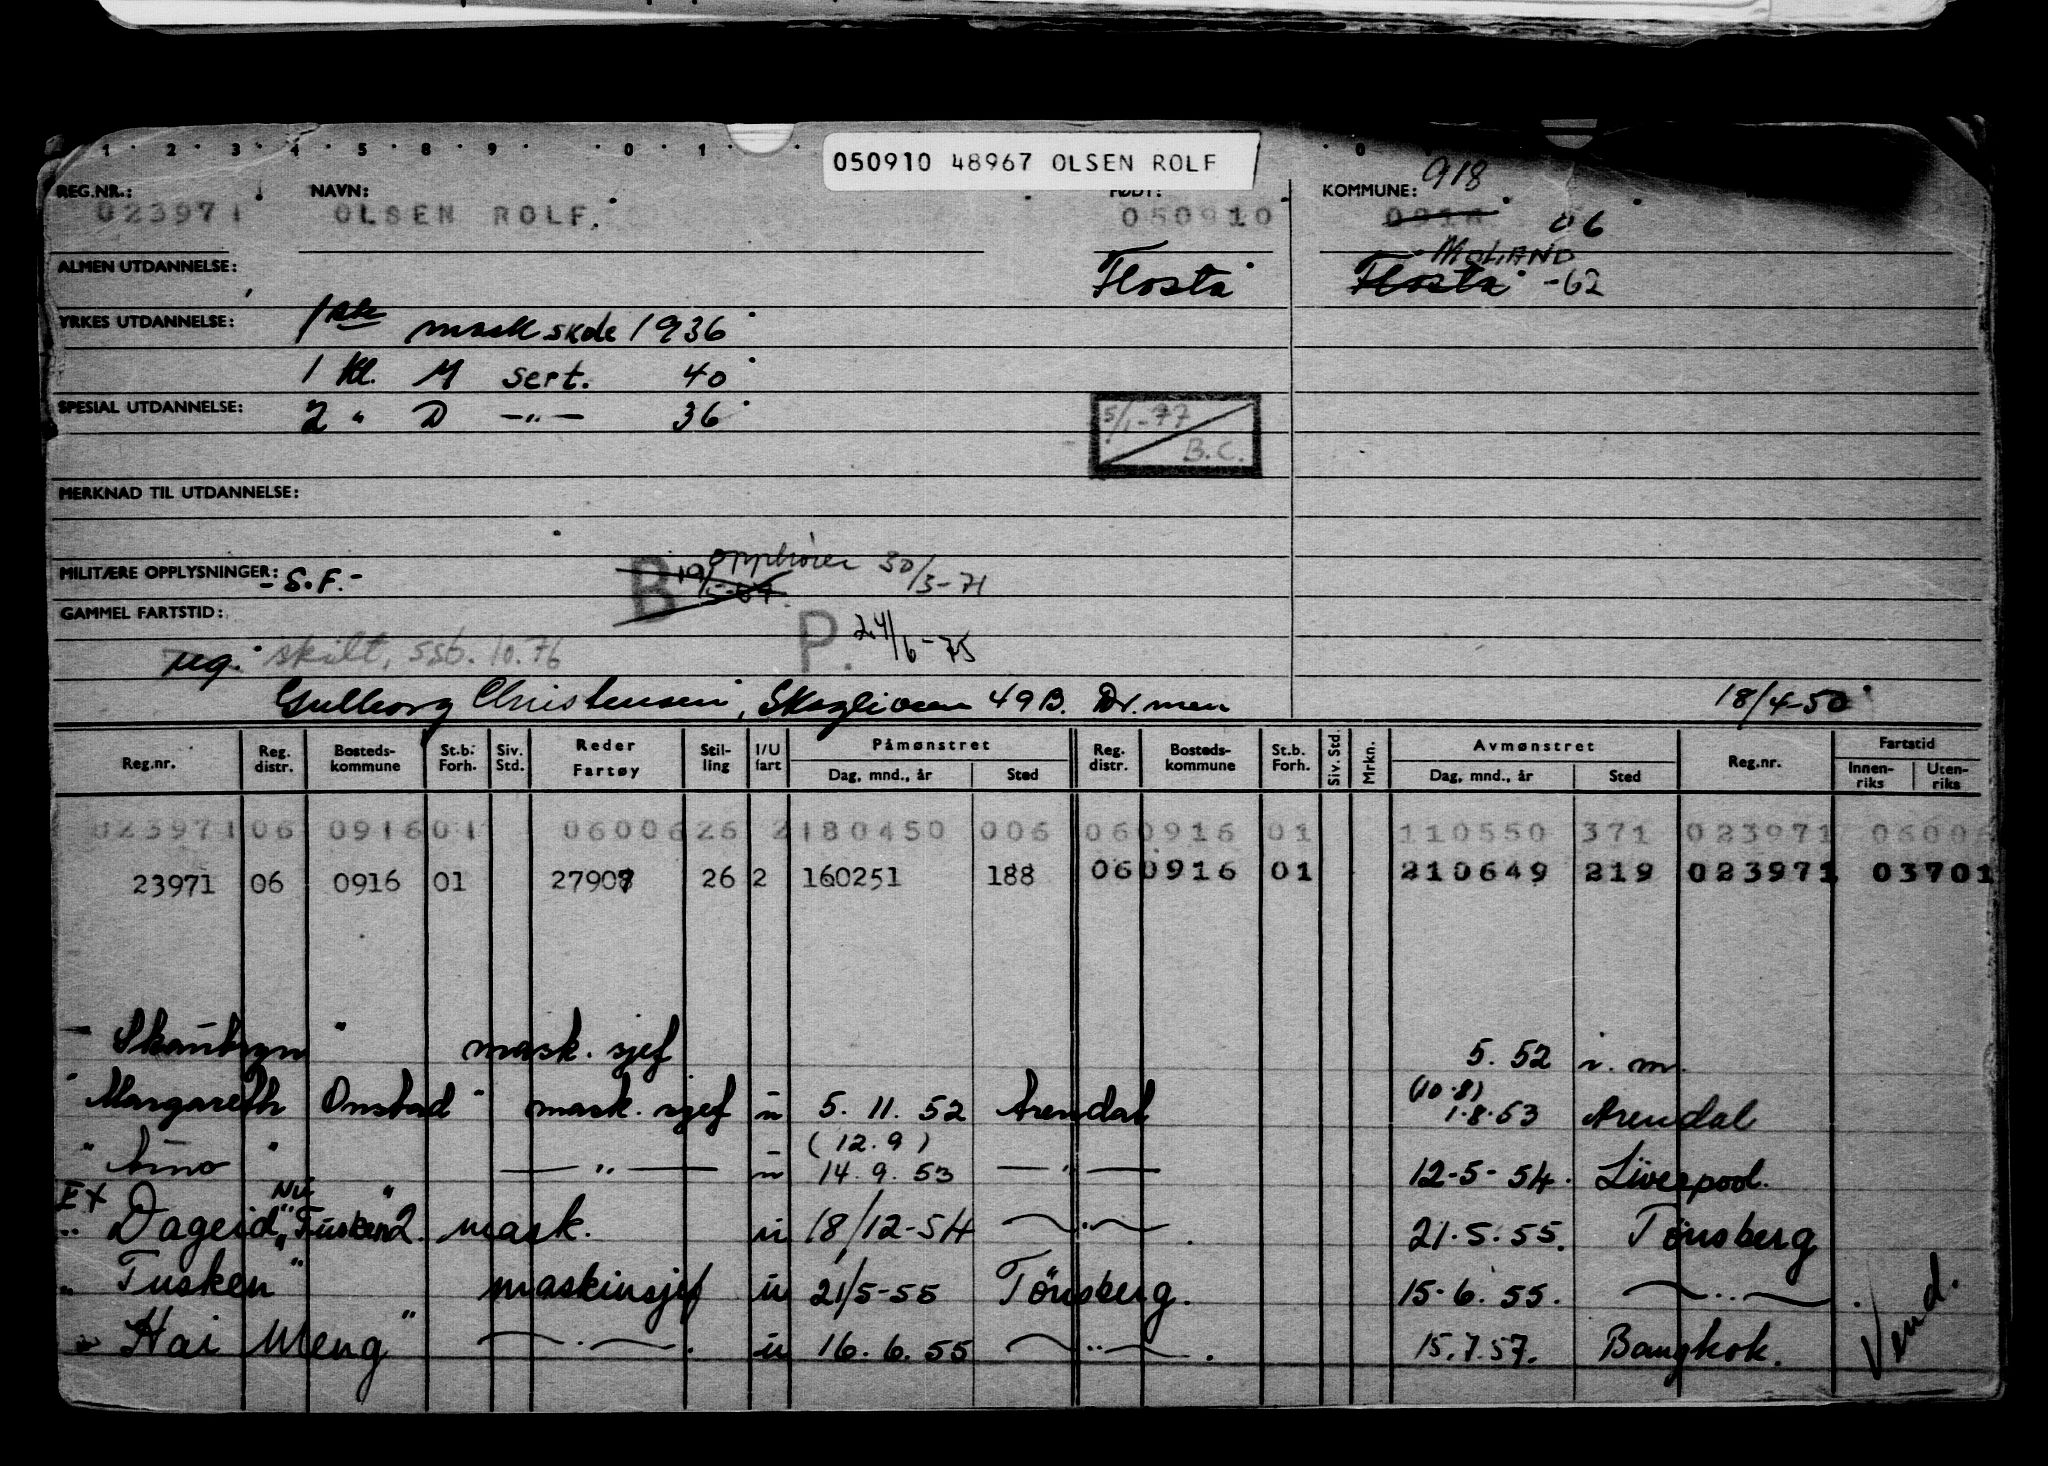 1 · 2 · 3 · 4 · 5 · 8 · 9 · · 0 · 1 · · 0 ·
050910 48967 OLSEN ROLF
REG.NR.: NAVN: FØDT: KOMMUNE: 918
023971 OLSEN ROLF. 050910 0916 06
MOLAND
ALMEN UTDANNELSE: Flosta Flosta -62
YRKES UTDANNELSE: 1 kl. mask skole 1936
1 kl. M sert. 40
SPESIAL UTDANNELSE: 2 " D -"- 36
5/1-77
B.C.
MERKNAD TIL UTDANNELSE:
MILITÆRE OPPLYSNINGER: -S.F.- B 19/5-67 Opphører 30/3-71
GAMMEL FARTSTID:
P. 24/6-75
reg. skilt, ssb. 10.76
Gulborg Christensen, Skogliveien 49B. Dr.men 18/4-50
Reg.nr. Reg. distr. Bosteds-kommune St.b. Forh. Siv. Std. Reder Fartøy Stil-ling I/U fart Påmønstret Dag, mnd., år Sted Reg. distr. Bosteds-kommune St.b. Forh. Siv. Std. Mrkn. Avmønstret Dag, mnd., år Sted Reg.nr. Fartstid Innen-riks Uten-riks
023971 06 0916 01 06006 26 2 180450 006 06 0916 01 110550 371 023971 06006
23971 06 0916 01 27907 26 2 160251 188 06 0916 01 210649 219 023971 03701
" Skaubryn " mask. sjef 5. 52 i. m.
(10.8)
" Margareth Onstad " mask. sjef u 5. 11. 52 Arendal 1.8.53 Arendal
(12.9)
" Aino " —"— u 14. 9. 53 —"— 12-5-54. Liverpool.
EX NÅ "
" Dageid "Tusken 2. mask. u 18/12-54 —"— . 21.5.55. Tønsberg
" Tusken " maskinsjef u 21/5-55 Tönsberg. 15.6.55. —"— .
" Hai Meng " —"— . u 16. 6. 55 —"— . 15.7.57. Bangkok.
Vend.